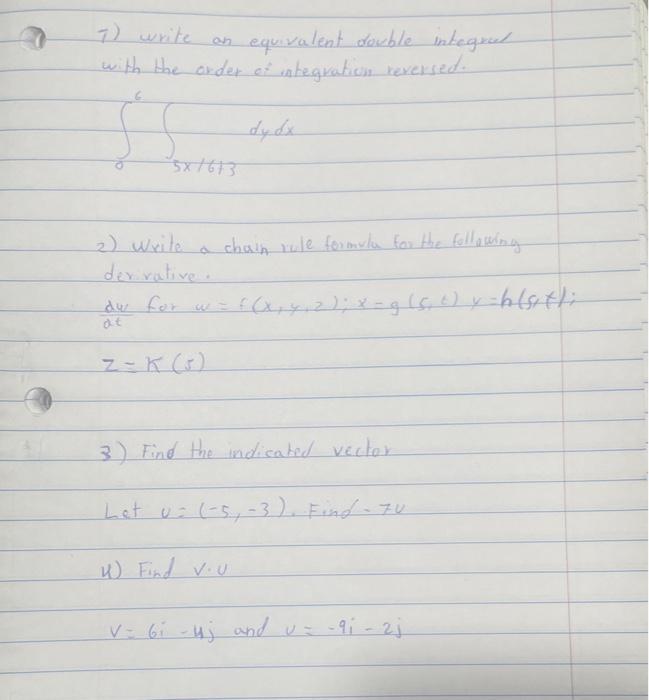 1) write an equivalent double integral
with the order of integration reversed.
∫₀⁶ ∫_{5x/6+3} dy dx
2) Write a chain rule formula for the following
derivative.
∂w/∂t for w = f(x, y, z); x = g(s, t) y = h(s, t);
z = K (s)
3) Find the indicated vector
Let u = (-5, -3). Find - 7u
4) Find v·u
v = 6i - 4j and u = -9i - 2j